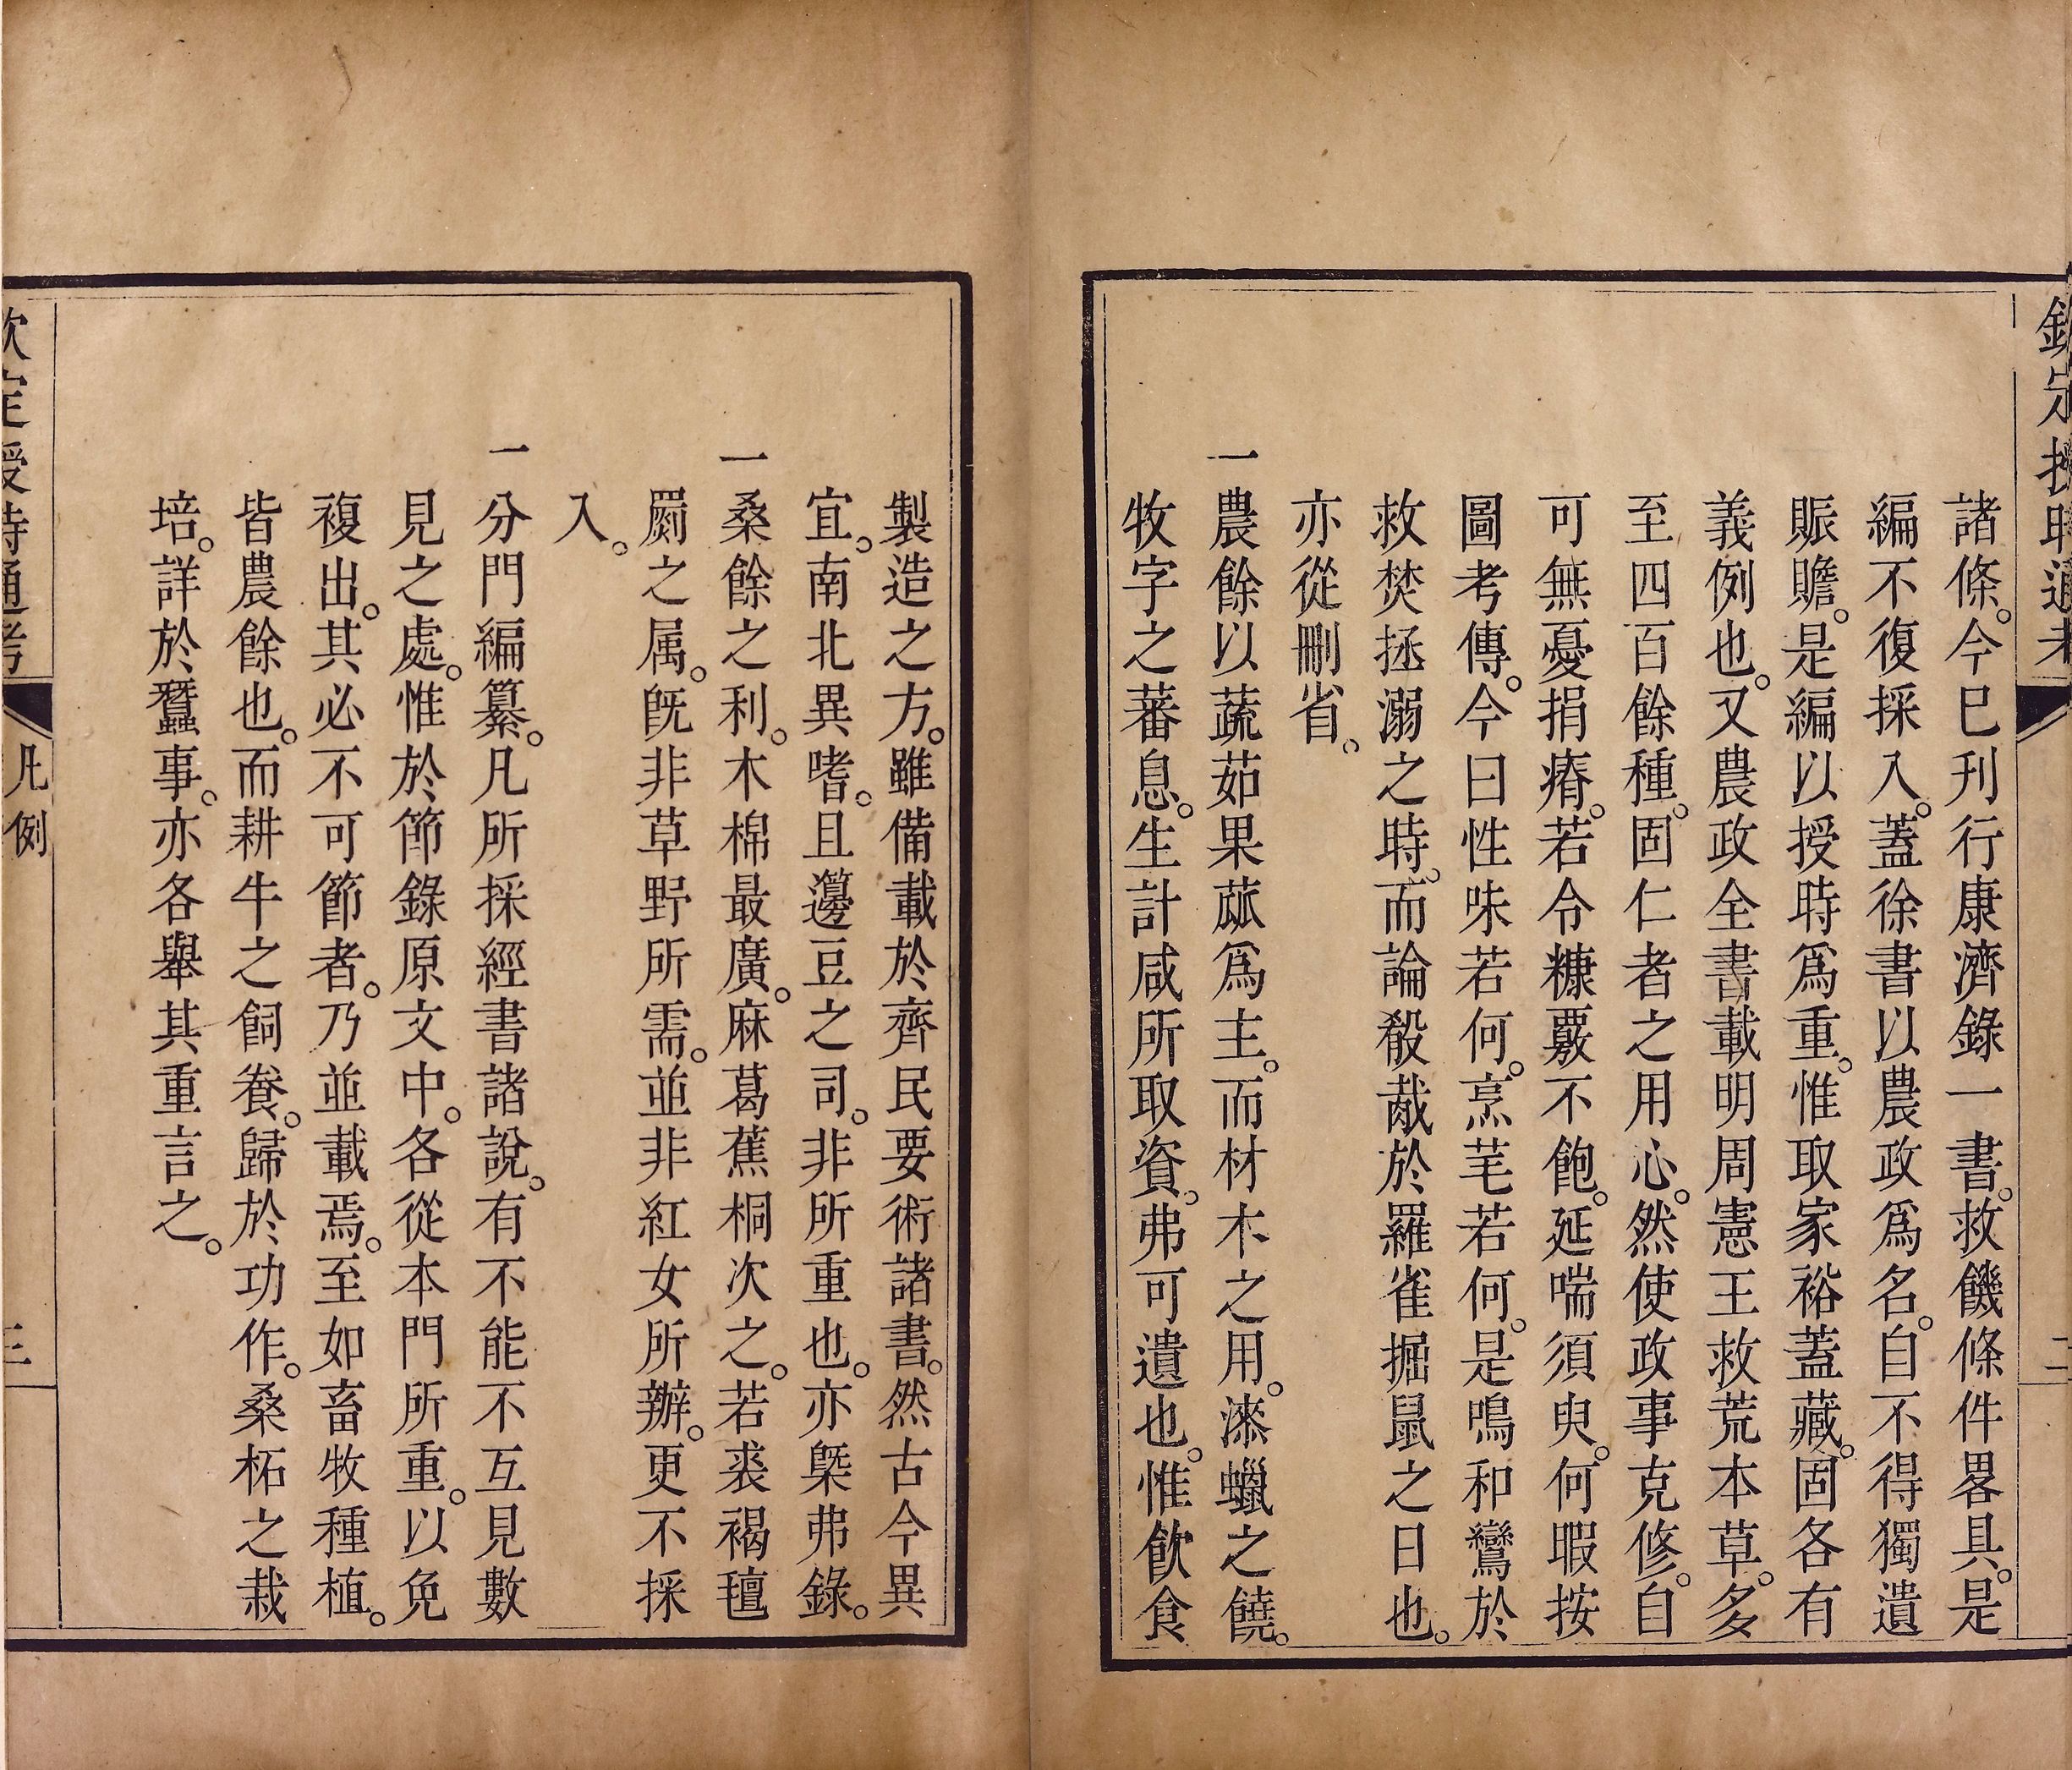 欽定授時通考
二
諸條。今已刊行康濟錄一書。救饑條件畧具。是
編不復採入。蓋徐書以農政爲名。自不得獨遺
賑贍。是編以授時爲重。惟取家裕蓋藏。固各有
義例也。又農政全書載明周憲王救荒本草。多
至四百餘種。固仁者之用心。然使政事克修。自
可無憂捐瘠。若令糠覈不飽。延喘須臾。何暇按
圖考傳。今曰性味若何。烹芼若何。是鳴和鸞於
救焚拯溺之時。而論殽胾於羅雀掘鼠之日也。
亦從刪省。
一農餘以蔬茹果蓏爲主。而材木之用。漆蠟之饒。
牧字之蕃息。生計咸所取資。弗可遺也。惟飲食
製造之方。雖備載於齊民要術諸書。然古今異
宜。南北異嗜。且籩豆之司。非所重也。亦槩弗錄。
一桑餘之利。木棉最廣。麻葛蕉桐次之。若裘褐氊
罽之属。旣非草野所需。並非紅女所辦。更不採
入。
一分門編纂。凡所採經書諸說。有不能不互見數
見之處。惟於節錄原文中。各從本門所重。以免
複出。其必不可節者。乃並載焉。至如畜牧種植。
皆農餘也。而耕牛之飼養。歸於功作。桑柘之栽
培。詳於蠶事。亦各舉其重言之。
欽定授時通考
凡例
三